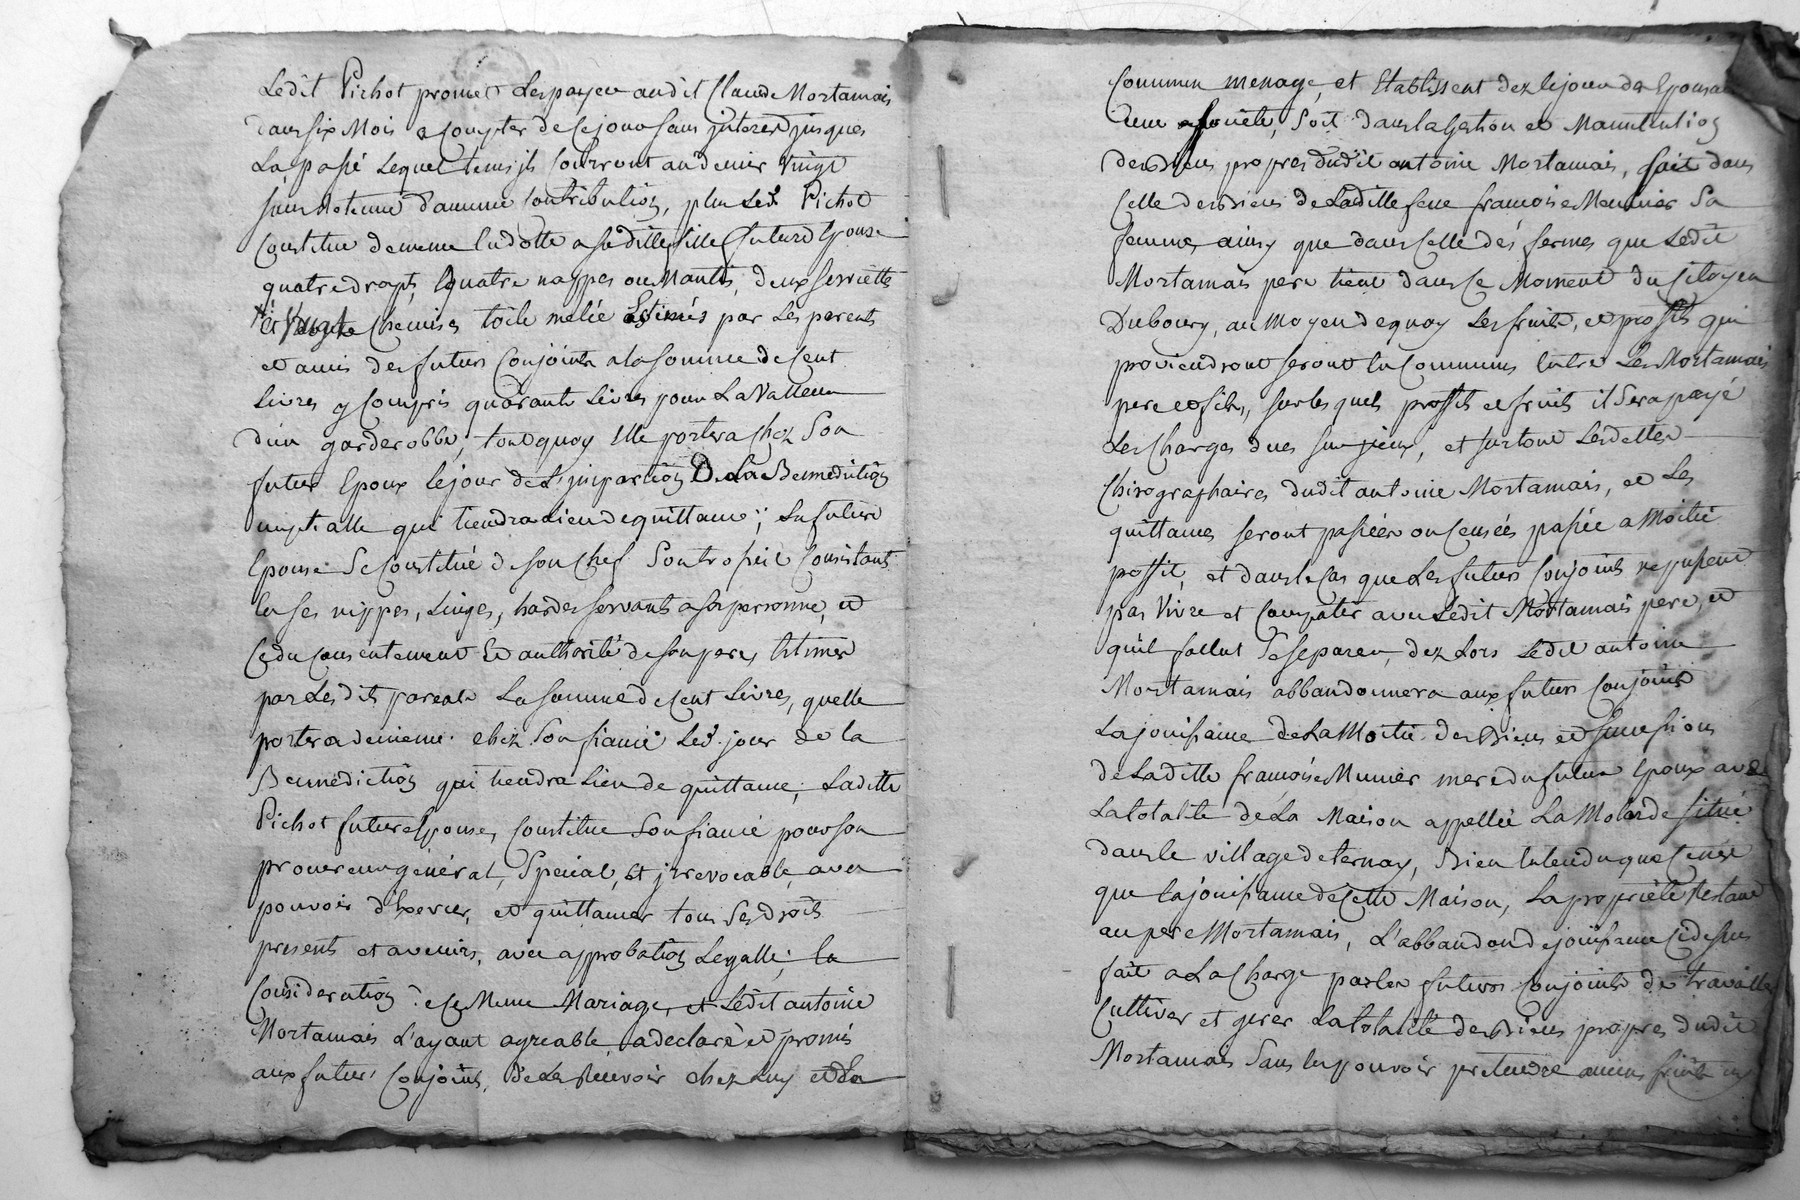 Ledit Pichot promet les payer audit Claude Mortamais
dans six Mois a Compter de Ce jour sans jnterest jusques
La, passé Lequel tems jls Courront au denier vingt
sans Retenue d'aucune Contribution, plus Led. Pichot
Constitue de meme En dotte a sa ditte fille future Epouse
quatre draps, Equatre nappes ou Nantes, deux serviettes
et vingt Chemises toile melée Estimés par Les parents
et amis des futurs Conjoints a la somme de Cent
Livres y Compris quarante Livres pour La Valleur
d'un garderobbe, tout quoy Elle portera chez Son
futur Epoux le jour de L'jmpartion De La Benediction
nuptialle qui tiendra Lieu de quittance; La future
Epouse Se Constitue de son Chef Son trosseil Consistant
En ses nippes, Linges, hardes servants a sa personne, et
Ce du Consentement Et authorité de son pere, Estimes
par Lesdits parents La somme de Cent Livres, quelle
portera de meme chez Son fiancé Led. jour de la
Bennediction qui tiendra Lieu de quittance; Laditte
Pichot future Epouse, Constitue Son fiancé pour son
procureur général, Special, et jrrevocable, avec
pouvoir d'Exercer, et quittancer tous Ses droits
presents et avenirs, avec approbation Legalle; En
Consideration de Ce Meme Mariage, et Ledit antoine
Mortamais L'ayant agreable, a declaré et promis
aux futurs Conjoints, de Les Recevoir chez Luy et En
Commun menage, et Etablissent dez le jour des Epousailles
une societé, Soit dans la Gestion et Manutention
des Biens propres dudit antoine Mortamais, soit dans
Celle des Biens de Laditte feue francoise Meunier Sa
femme, ainsy que dans Celle des fermes que Ledit
Mortamais pere tient dans Ce Moment du Citoyen
Duboury, au Moyen de quoy Les fruits, et profits qui
proviendront seront En Communs Entre Les Mortamais
pere et fils, sur les quels proffits et fruits il Sera payé
Les Charges dues sur jceux, et surtout Les dettes
Chirographaires dudit antoine Mortamais, et Les
quittances seront passées ou Censées passée a Moitié
proffit, et dans le Cas que Les futurs Conjoints ne pussent
pas Vivre et Compatir avec Ledit Mortamais pere, et
quil fallut Se Separer, dez Lors Ledit antoine
Mortamais abbandonnera aux futurs Conjoints
La jouissance de La Moitié des Biens et succession
de Laditte francoise Munier mere du futur Epoux avec
La totalité de La Maison appellée La Molarde situé
dans le village de ternay, Bien Entendu que Ce n'est
que La jouissance de Cette Maison, La proprieté Restant
au pere Mortamais, L'abbandon de jouissance Cidessus
fait a La Charge par les futurs Conjoints de travailler
Cultiver et gerer La totalité des Biens propres dudit
Mortamais Sans En pouvoir pretendre aucuns fruits